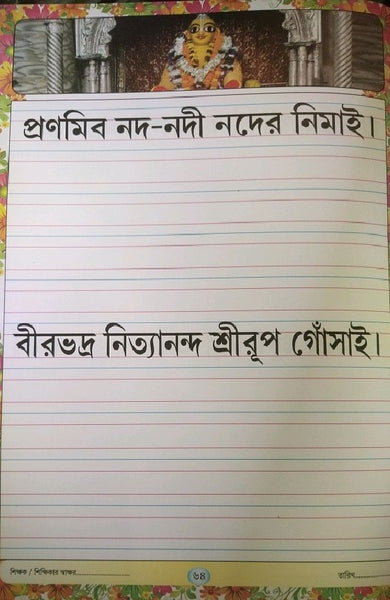 প্রণমিব নদ-নদী নদের নিমাই।
বীরভদ্র নিত্যানন্দ শ্রীরূপ গোঁসাই।
শিক্ষক / শিক্ষিকার স্বাক্ষর............................ ৬৪ তারিখ................